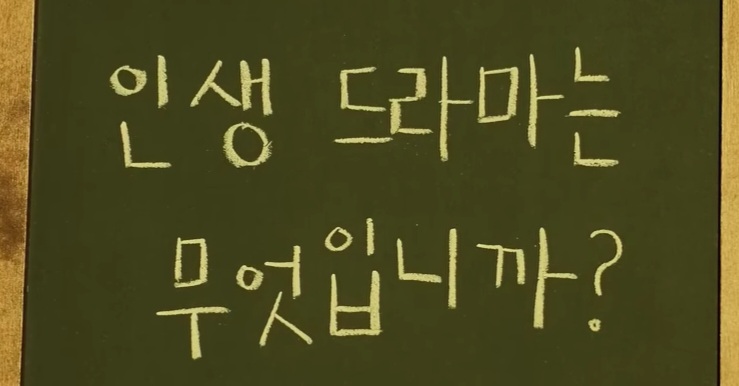 인생 드라마는
무엇입니까?